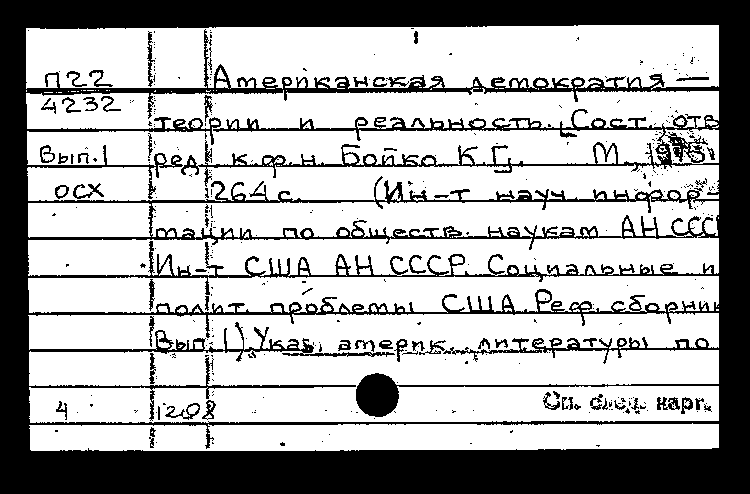 П22
4232
Вып.1
ОСХ
Американская демократия —
теории и реальность. [Сост., отв
ред. к.ф.н. Бойко К.Г]. М., 1975.
264 с. (Ин-т науч. инфор-
мации по обществ. наукам АН СССР
Ин-т США АН СССР. Социальные и
полит. проблемы США. Реф. сборник
Вып.1). Указ. америк. литературы по
4 1208
См. след. карт.